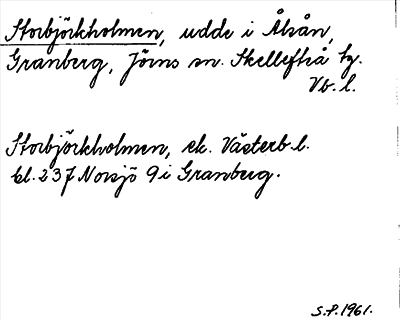 Storbjörkholmen, udde i Ålsån,
Granberg, Jörns sn. Skellefteå tg.
Vb. l.
Storbjörkholmen, ek. Västerb. l.
bl. 237 Norsjö 9 i Granberg.
S.P. 1961.